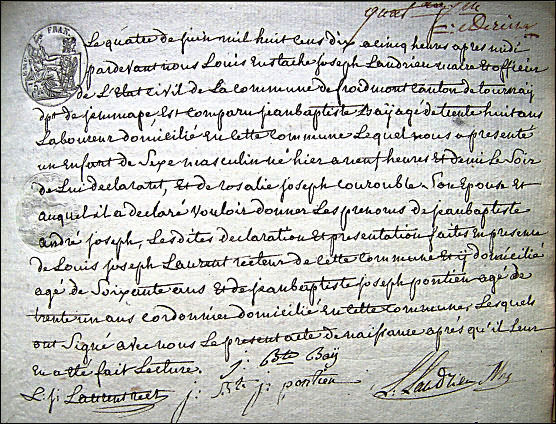 Le quatre de juin mil huit cens dix a cinq heures apres midi
pardevant nous Louis Eustache Joseph Landrieu maire et officier
de L'Etat Civil de La Commune de froidmont Canton de tournay
dpt de jemmape Est Comparu jeanbaptiste Baÿ agé de trente huit ans
Laboureur domicilié en Cette Commune Lequel nous a presenté
un Enfant de Sexe masculin né hier a neuf heures et demi Le Soir
de Lui declarant, Et de rosalie joseph Courouble Son Epouse Et
auquel il a déclaré vouloir donner Les prenoms de jeanbaptiste
andré joseph, Lesdites declaration Et presentation faites En presence
de Louis joseph Laurent recteur de Cette Commune Et y domicilié
agé de Soixente ans Et de jeanbaptiste joseph pontien agé de
trente un ans Cordonnier domicilié En Cette Commune, Lesquels
ont Signé avec nous Le present acte de naissance après qu'il Leur
En a été fait Lecture.
j: Bte Baÿ
L. j: Laurent rect
j: Bte j: pontien
L. Landrieu